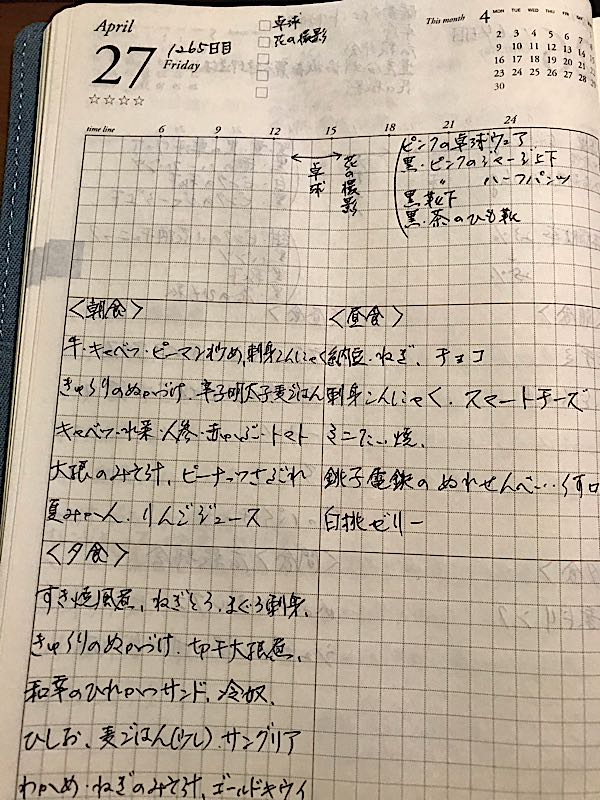 April
27
1265日目
Friday
☆☆☆☆
卓球
花の撮影
This month 4
MON TUE WED THU FRI
2 3 4 5 6 7
9 10 11 12 13 14
16 17 18 19 20 21
23 24 25 26 27 28
30
time line 6 9 12 15 18 21 24
卓球
花の撮影
ピンクの卓球ウェア
黒・ピンクのジャージ上下
〃 ハーフパンツ
黒靴下
黒・茶のひも靴
<朝食>
牛・キャベツ・ピーマン炒め、刺身こんにゃく
きゅうりのぬかづけ、辛子明太子、麦ごはん
キャベツ・水菜・人参・赤かぶ・トマト
大根のみそ汁、ピーナッツさざれ
夏みかん、りんごジュース
<昼食>
納豆・ねぎ、チョコ
刺身こんにゃく、スマートチーズ
ミニたい焼、
銚子電鉄のぬれせんべい…うす口
白桃ゼリー
<夕食>
すき焼風煮、ねぎとろ、まぐろ刺身、
きゅうりのぬかづけ、切干大根煮、
和幸のひれかつサンド、冷奴、
ひしお、麦ごはん(少し)、サングリア
わかめ・ねぎのみそ汁、ゴールドキウイ